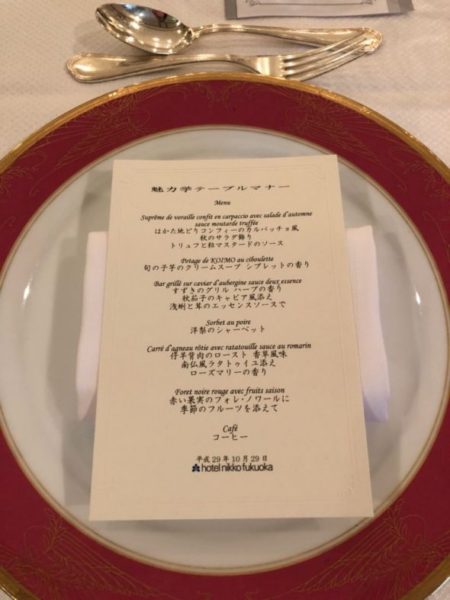 魅力学テーブルマナー
Menu
Suprême de voraille confit en carpaccio avec salade d'automne
sauce moutarde truffée
はかた地どりコンフィーのカルパッチョ風
秋のサラダ飾り
トリュフと粒マスタードのソース
Potage de KOIMO au ciboulette
旬の子芋のクリームスープ シブレットの香り
Bar grillé sur caviar d'aubergine sauce deux essence
すずきのグリル ハーブの香り
秋茄子のキャビア風添え
浅蜊と茸のエッセンスソースで
Sorbet au poire
洋梨のシャーベット
Carré d'agneau rôtie avec ratatouille sauce au romarin
仔羊背肉のロースト 香草風味
南仏風ラタトゥイユ添え
ローズマリーの香り
Foret noire rouge avec fruits saison
赤い果実のフォレ・ノワールに
季節のフルーツを添えて
Café
コーヒー
平成29年10月29日
hotel nikko fukuoka